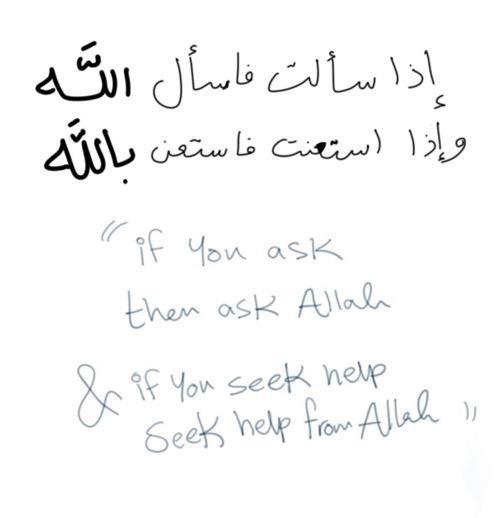 إذا سألت فاسأل اللَّه
وإذا استعنت فاستعن باللَّه
"if you ask
then ask Allah
& if you seek help
seek help from Allah"